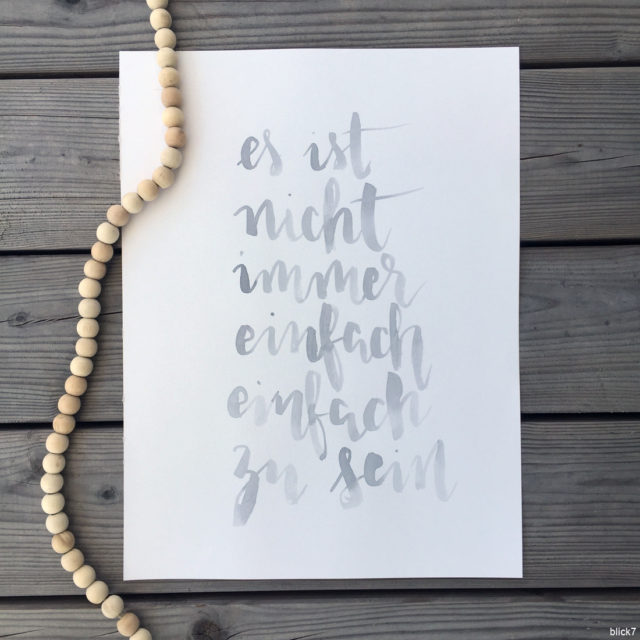 es ist
nicht
immer
einfach
einfach
zu sein
blick7